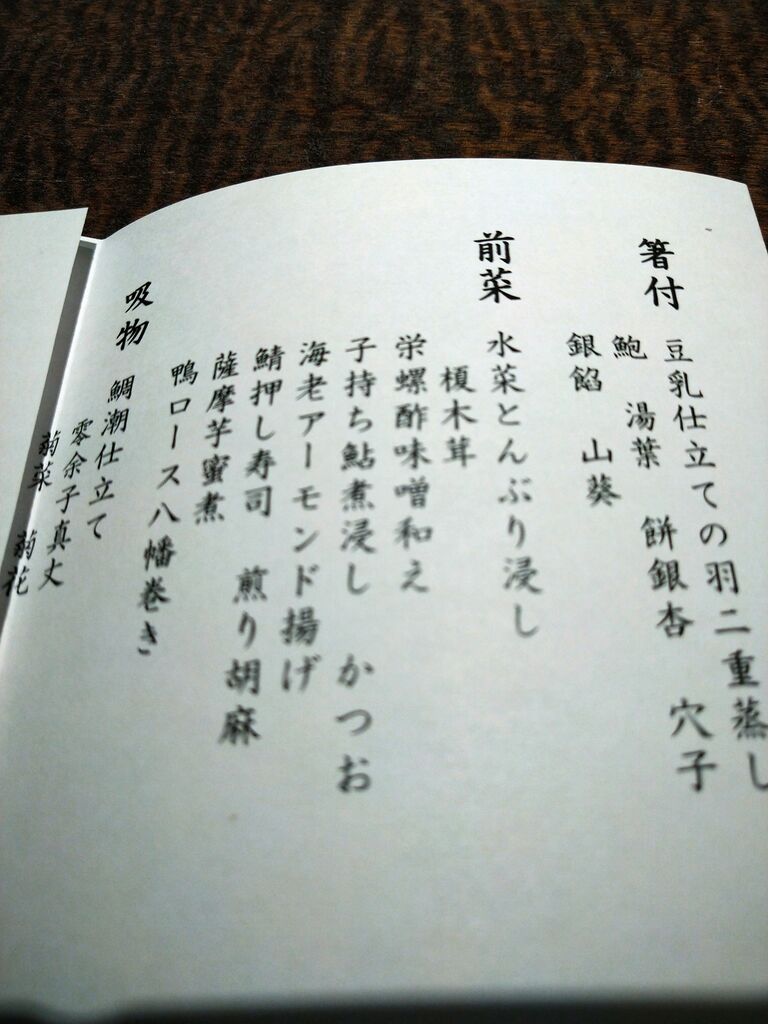 箸付
豆乳仕立ての羽二重蒸し
鮑 湯葉 餅銀杏 穴子
銀餡 山葵
前菜
水菜とんぶり浸し
榎木茸
栄螺酢味噌和え
子持ち鮎煮浸し かつお
海老アーモンド揚げ
鯖押し寿司 煎り胡麻
薩摩芋蜜煮
鴨ロース八幡巻き
吸物
鯛潮仕立て
零余子真丈
菊菜 菊花